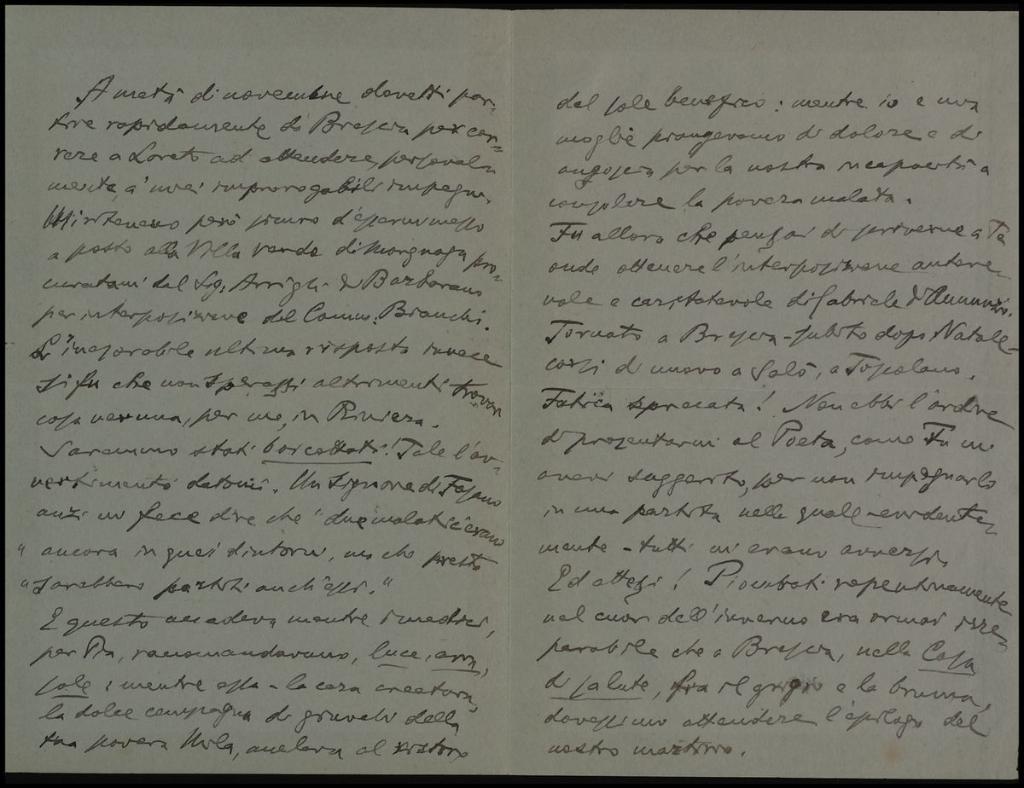 A metà di novembre dovetti par-
tire rapidamente di Brescia per cor-
rere a Loreto ad attendere personal-
mente a' miei improrogabili impegni.
Mi ritenevo però sicuro d'essermi messo
a posto alla Villa verde di Morgnaga pro-
curatami dal Sig. Arrighi di Barbarano
per interposizione del Comm. Bianchi.
L'inesorabile ultima risposta invece
si fu che non isperassi altrimenti trovar
cosa veruna, per me, in Riviera.
Saremmo stati boicottati! Tale l'av-
vertimento datomi. Un signore di Fasano
anzi mi fece dire che "due malati c'erano
" ancora in quei dintorni, ma che presto
" sarebbero partiti anch'essi."
E questo accadeva mentre i medici,
per Pia, raccomandavano, luce, aria,
sole; mentre essa - la cara creatura,
la dolce compagna di giuochi della
tua povera Mila, anelava al ristoro
del sole benefico: mentre io e mia
moglie piangevamo di dolore e di
angoscia per la nostra incapacità a
consolare la povera malata.
Fu allora che pensai di scriverne a Te
onde ottenere l'interposizione autore-
vole e caritatevole di Gabriele d'Annunzio.
Tornato a Brescia - subito dopo Natale -
corsi di nuovo a Salò, a Toscolano.
Fatica sprecata! Non ebbi l'ardire
di presentarmi al Poeta, come Tu mi
avevi suggerito, per non impegnarlo
in una partita nella quale - evidente-
mente - tutti mi erano avversi.
Ed attesi! Piombati repentinamente
nel cuor dell'inverno era ormai irre-
parabile che a Brescia, nella Casa
di salute, fra il grigio e la bruma,
dovessimo attendere l'epilogo del
nostro martirio.